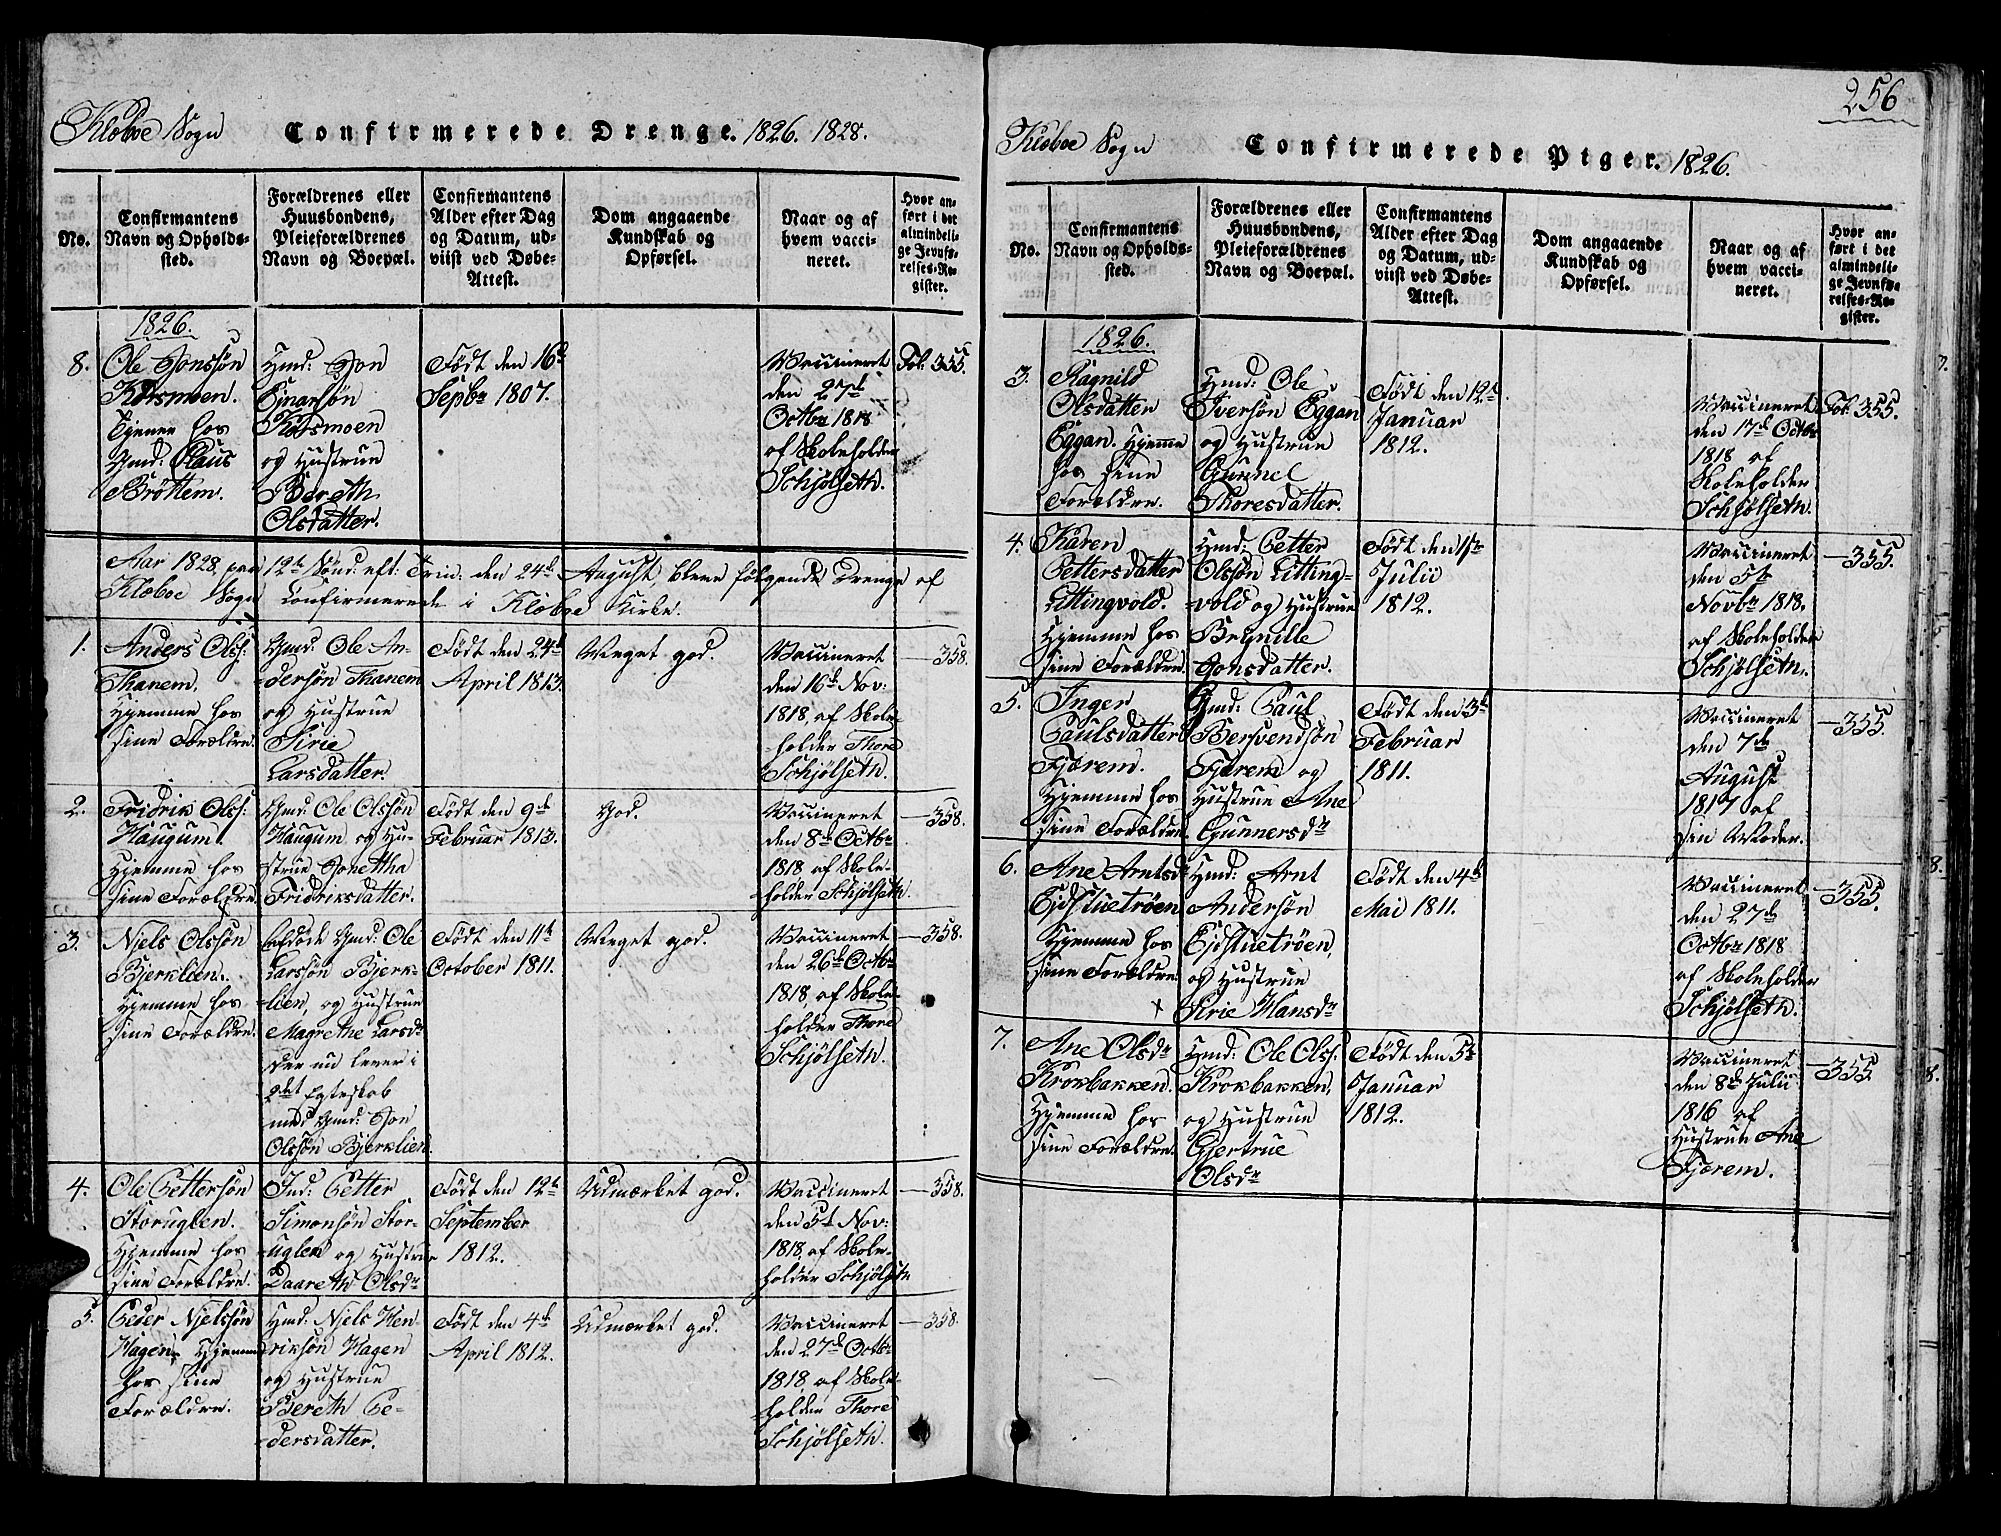 Klæboe Sogn Confirmerede Drenge. 1826. 1828.
No.
Confirmantens
Navn og Opholds-
sted.
Forældrenes eller
Huusbondens,
Pleieforældrenes
Navn og Boepæl.
Confirmantens
Alder efter Dag
og Datum, ud-
viist ved Døbe-
Attest.
Dom angaaende
Kundskab og
Opførsel.
Naar og af
hvem vacci-
neret.
Hvor an-
ført i det
almindeli-
ge Jevnfø-
relses-Re-
gister.
1826.
8.
Ole Jonssøn
Kosmoen.
Tjener hos
Gmd: Claus
Brøttem.
Hmd: Jon
Ejnarsøn
Kosmoen
og Hustrue
Bereth
Olsdatter.
Født den 16de
Sepbr 1807.
Vaccineret
den 27de
Octbr 1818
af Skoleholder
Schjølseth.
Fol: 355.
Aar 1828, paa 12te Sønd: eft: Trin: den 24de August, bleve følgende Drenge af
Klæboe Sogn Confirmerede i Klæboe Kirke.
1.
Anders Olss:
Thanem.
Hjemme hos
sine Forældre.
Gmd: Ole An-
dersøn Thanem
og Hustrue
Sirie
Larsdatter.
Født den 24de
April 1813.
Meget god.
Vaccineret
den 16de Nov:
1818, af Skole-
holder Thore
Schjølseth.
— 358.
2.
Fridrik Olss:
Haugum.
Hjemme hos
sine Forældre.
Gmd: Ole Olssøn
Haugum og Hu-
strue Jonettha
Fridriksdatter.
Født den 9de
Februar 1813.
God.
Vaccineret
den 8de Octbr
1818, af Skole-
holder Schjølseth.
— 358.
3.
Niels Olssøn
Bjerklien.
Hjemme hos
sine Forældre.
afdøde Gmd: Ole
Larssøn Bjerk-
lien, og Hustrue
Magrethe Larsdr
der nu lever i
2det Egteskab
med Gmd: Jon
Olssøn Bjerklien.
Født den 11te
October 1811.
Meget god.
Vaccineret
den 26de Octbr
1818, af Skole-
holder Thore
Schjølseth.
— 358.
4.
Ole Pettersøn
Storuglen.
Hjemme hos
sine Forældre.
Ind: Petter
Simonsøn Stor-
uglen og Hustrue
Daareth Olsdr
Født den 12te
September
1812.
Udmærket god.
Vaccineret
den 5te Nov:
1818, af Skole-
holder Schjølseth
— 358.
5.
Peder Njelssøn
Hagen. Hjemme
hos sine
Forældre.
Hmd: Njels Hen-
riksøn Hagen
og Hustrue
Bereth Pe-
dersdatter.
Født den 4de
April 1812.
Udmærket god.
Vaccineret
den 27de Octbr
1818, af Skole-
holder Thore
Schjølseth.
— 358.
256
Klæboe Sogn Confirmerede Piger. 1826.
No.
Confirmantens
Navn og Opholds-
sted.
Forældrenes eller
Huusbondens,
Pleieforældrenes
Navn og Boepæl.
Confirmantens
Alder efter Dag
og Datum, ud-
viist ved Døbe-
Attest.
Dom angaaende
Kundskab og
Opførsel.
Naar og af
hvem vacci-
neret.
Hvor an-
ført i det
almindeli-
ge Jevnfø-
relses-Re-
gister.
1826.
3.
Ragnild
Olsdatter
Eggan. Hjemme
hos sine
Forældre.
Hmd: Ole
Iversøn Eggan
og Hustrue
Gunnel
Thoresdatter.
Født den 12te
Januar
1812.
Vaccineret
den 17de Octbr
1818 af
Skoleholder
Schjølseth.
Fol: 355.
4.
Karen
Pettersdatter
Littingvold.
Hjemme hos
sine Forældre.
Hmd: Petter
Olssøn Litting-
vold og Hustrue
Brynille
Jonsdatter.
Født den 1ste
Julii
1812.
Vaccineret
den 5te
Novbr 1818,
af Skoleholder
Schjølseth.
— 355.
5.
Inger
Paulsdatter
Fjærem.
Hjemme hos
sine Forældre.
Gmd: Paul
Bersvendsøn
Fjærem og
Hustrue Ane
Gunnersdr
Født den 3de
Februar
1811.
Vaccineret
den 7de
August
1817 af
sin Moder.
— 355.
6.
Ane Arntsdr
Ejdstuetrøen
Hjemme hos
sine Forældre.
Hmd: Arnt
Andersøn
Ejdstuetrøen,
og Hustrue
Sirie Hansdr
Født den 4de
Mai 1811.
Vaccineret
den 27de
Octbr 1818
af Skoleholder
Schjølseth.
— 355.
7.
Ane Olsdr
Krokbakken.
Hjemme hos
sine Forældre.
Hmd: Ole Olss:
Krokbakken,
og Hustrue
Gjertrue
Olsdr
Født den 5te
Januar
1812.
Vaccineret
den 8de Julii
1816 af
Hustrue Ane
Fjærem.
— 355.